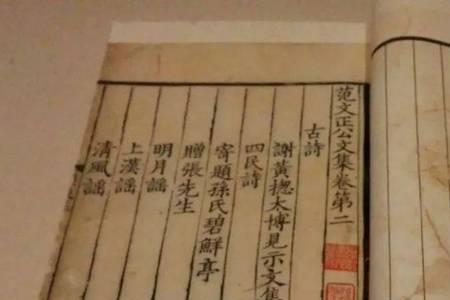 范文正公文集卷第二
古詩
謝黃揔太博見示文集
四民詩
寄題孫氏碧鮮亭
贈張先生
明月謡
上漢謡
清風謡